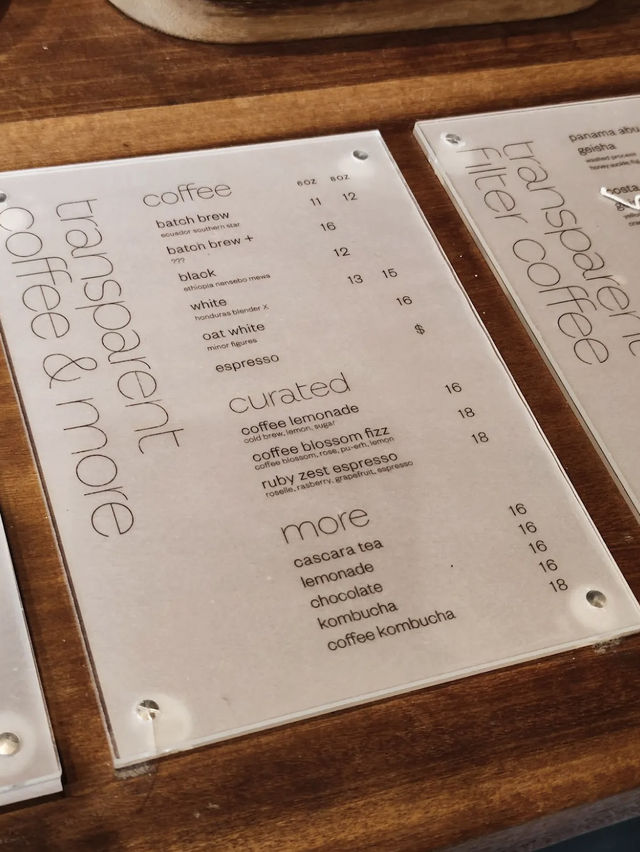 transparent
coffee & more
coffee
6 OZ 8 OZ
batch brew 11 12
ecuador southern star
batch brew + 16
???
black 12
ethiopia nensebo mewa
white 13 15
honduras blender X
oat white 16
minor figures
espresso $
curated
coffee lemonade 16
cold brew, lemon, sugar
coffee blossom fizz 18
coffee blossom, rose, pu-erh, lemon
ruby zest espresso 18
roselle, rasberry, grapefruit, espresso
more
cascara tea 16
lemonade 16
chocolate 16
kombucha 16
coffee kombucha 18
transparent
filter coffee
panama abu
geisha
washed process